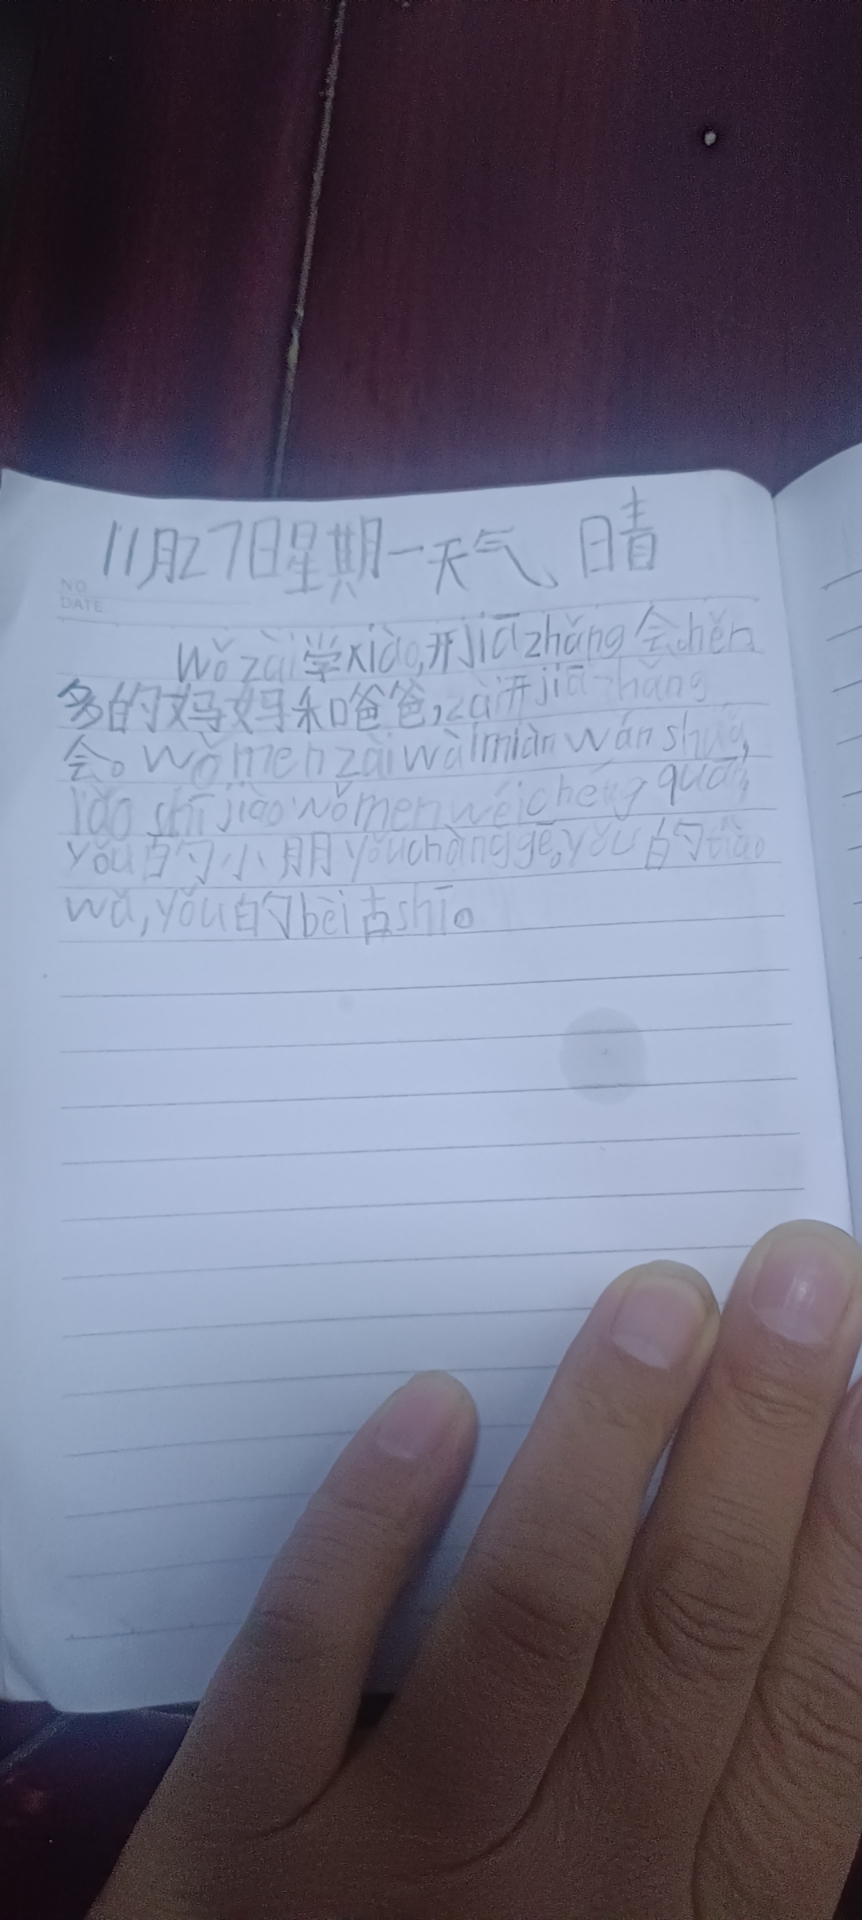 11月27日星期一天气 晴
NO
DATE
wǒ zài学xiào,开jiāzhǎng会,hěn
多的妈妈和爸爸,zài开jiā zhǎng
会。wǒ men zài wài miàn wán shuǎ,
lǎo shī jiào wǒ men wéi chéng quān,
yǒu的小朋yǒu chàng gē。yǒu的tiào
wǔ,yǒu的bèi古shī。